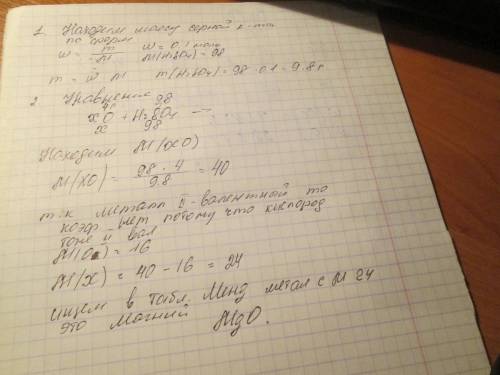 1. Находим массу серной к-ты
по форм
w = m/M w = 0.1 моль
M(H₂SO₄) = 98
m = w M m(H₂SO₄) = 98 · 0.1 = 9.8 г
2 Уравнение
4 9.8
xO + H₂SO₄ →
x 98
Находим M(XO)
M(XO) = (98 · 4)/9.8 = 40
т.к металл II-валентной то
коэф. нет потому что кислород
тоже II вал
M(O) = 16
M(X) = 40 - 16 = 24
ищем в табл. Менд метал с M 24
это магний MgO.